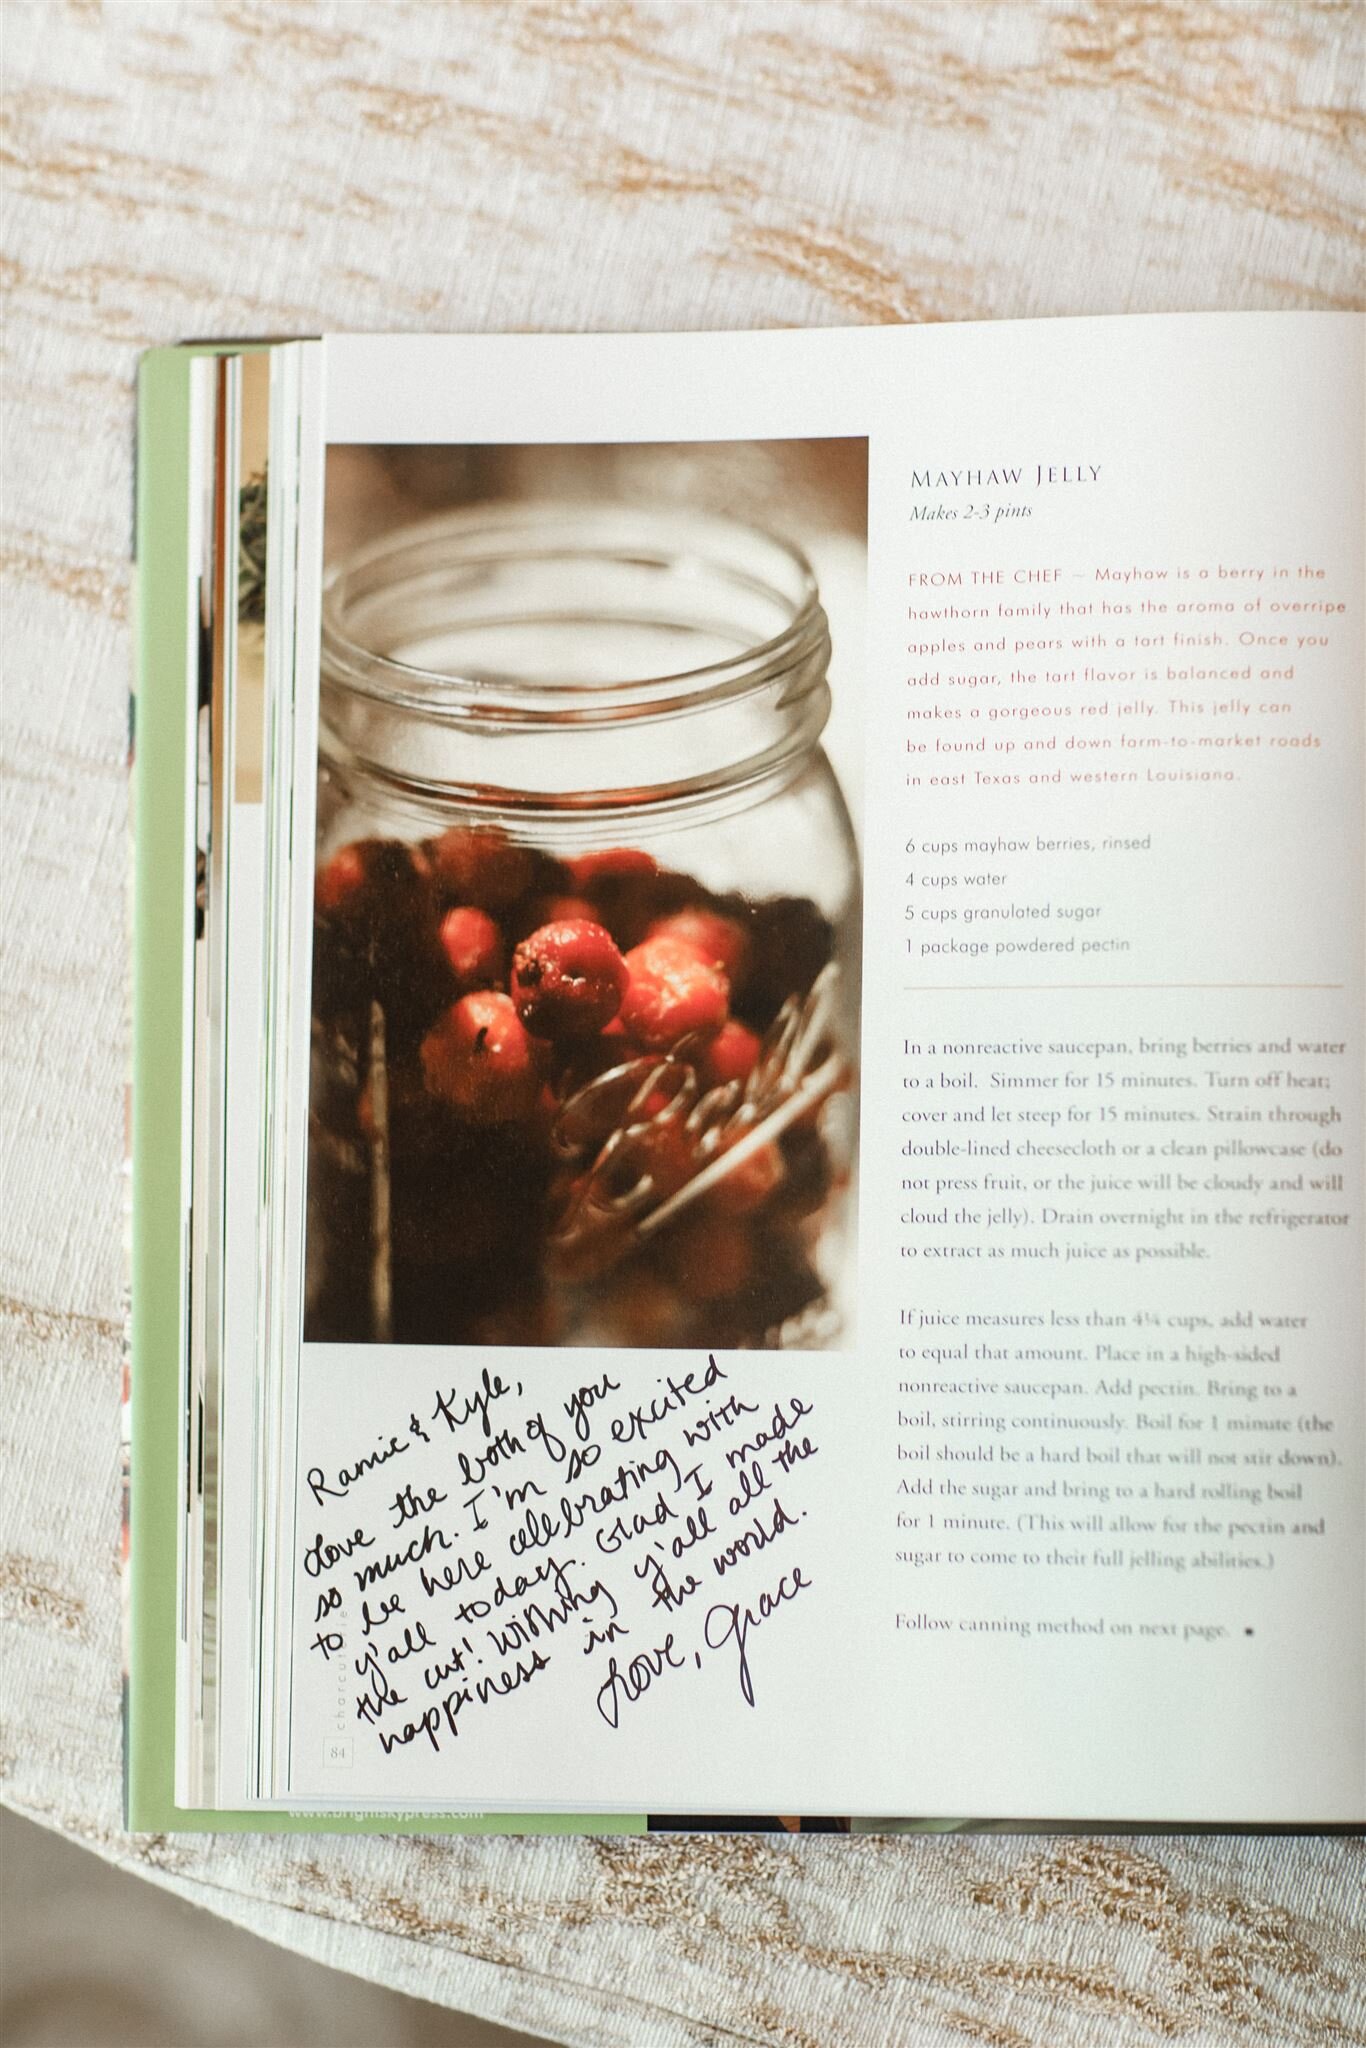 MAYHAW JELLY
Makes 2-3 pints
FROM THE CHEF ~ Mayhaw is a berry in the
hawthorn family that has the aroma of overripe
apples and pears with a tart finish. Once you
add sugar, the tart flavor is balanced and
makes a gorgeous red jelly. This jelly can
be found up and down farm-to-market roads
in east Texas and western Louisiana.
6 cups mayhaw berries, rinsed
4 cups water
5 cups granulated sugar
1 package powdered pectin
In a nonreactive saucepan, bring berries and water
to a boil. Simmer for 15 minutes. Turn off heat;
cover and let steep for 15 minutes. Strain through
double-lined cheesecloth or a clean pillowcase (do
not press fruit, or the juice will be cloudy and will
cloud the jelly). Drain overnight in the refrigerator
to extract as much juice as possible.
If juice measures less than 4¼ cups, add water
to equal that amount. Place in a high-sided
nonreactive saucepan. Add pectin. Bring to a
boil, stirring continuously. Boil for 1 minute (the
boil should be a hard boil that will not stir down).
Add the sugar and bring to a hard rolling boil
for 1 minute. (This will allow for the pectin and
sugar to come to their full jelling abilities.)
Follow canning method on next page. ■
Ramie & Kyle,
Love the both of you
so much. I'm so excited
to be here celebrating with
y'all today. Glad I made
the cut! Wishing y'all all the
happiness in the world.
Love, Grace
charcuterie
84
www.brightskypress.com